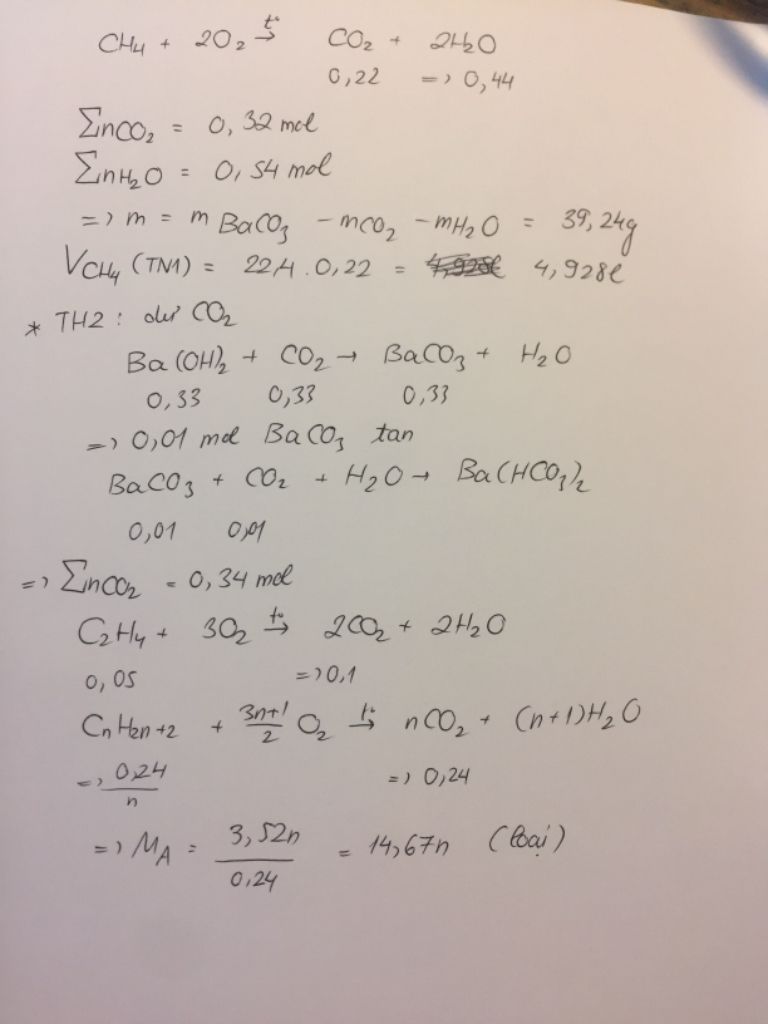 CH₄ + 2O₂ →(t°) CO₂ + 2H₂O
0,22 => 0,44
∑nCO₂ = 0,32 mol
∑nH₂O = 0,54 mol
=> m = m BaCO₃ - mCO₂ - mH₂O = 39,24g
V CH₄ (TN1) = 22,4 . 0,22 = 4,928l
* TH2: dư CO₂
Ba(OH)₂ + CO₂ → BaCO₃ + H₂O
0,33 0,33 0,33
=> 0,01 mol BaCO₃ tan
BaCO₃ + CO₂ + H₂O → Ba(HCO₃)₂
0,01 0,01
=> ∑nCO₂ = 0,34 mol
C₂H₄ + 3O₂ →(t°) 2CO₂ + 2H₂O
0,05 => 0,1
CnH2n+2 + (3n+1)/2 O₂ →(t°) nCO₂ + (n+1)H₂O
=> 0,24/n => 0,24
=> MA = 3,52n/0,24 = 14,67n (loại)